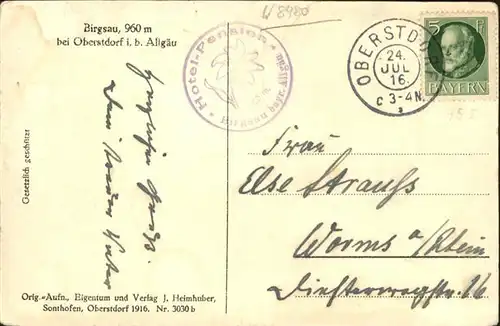 Birgsau, 960 m
bei Oberstdorf i. b. Allgäu
W8980
Hotel-Pension
Birgsau
OBERSTDORF
24.
JUL
16.
C 3-4 N.
5 Pf
BAYERN
Gesetzlich geschützt
Herzlichen Gruß
Dein
Frau
Else Strauss
Worms a/Rhein
Diesterwegstr. 16
Orig.-Aufn., Eigentum und Verlag J. Heimhuber,
Sonthofen, Oberstdorf 1916. Nr. 3030 b